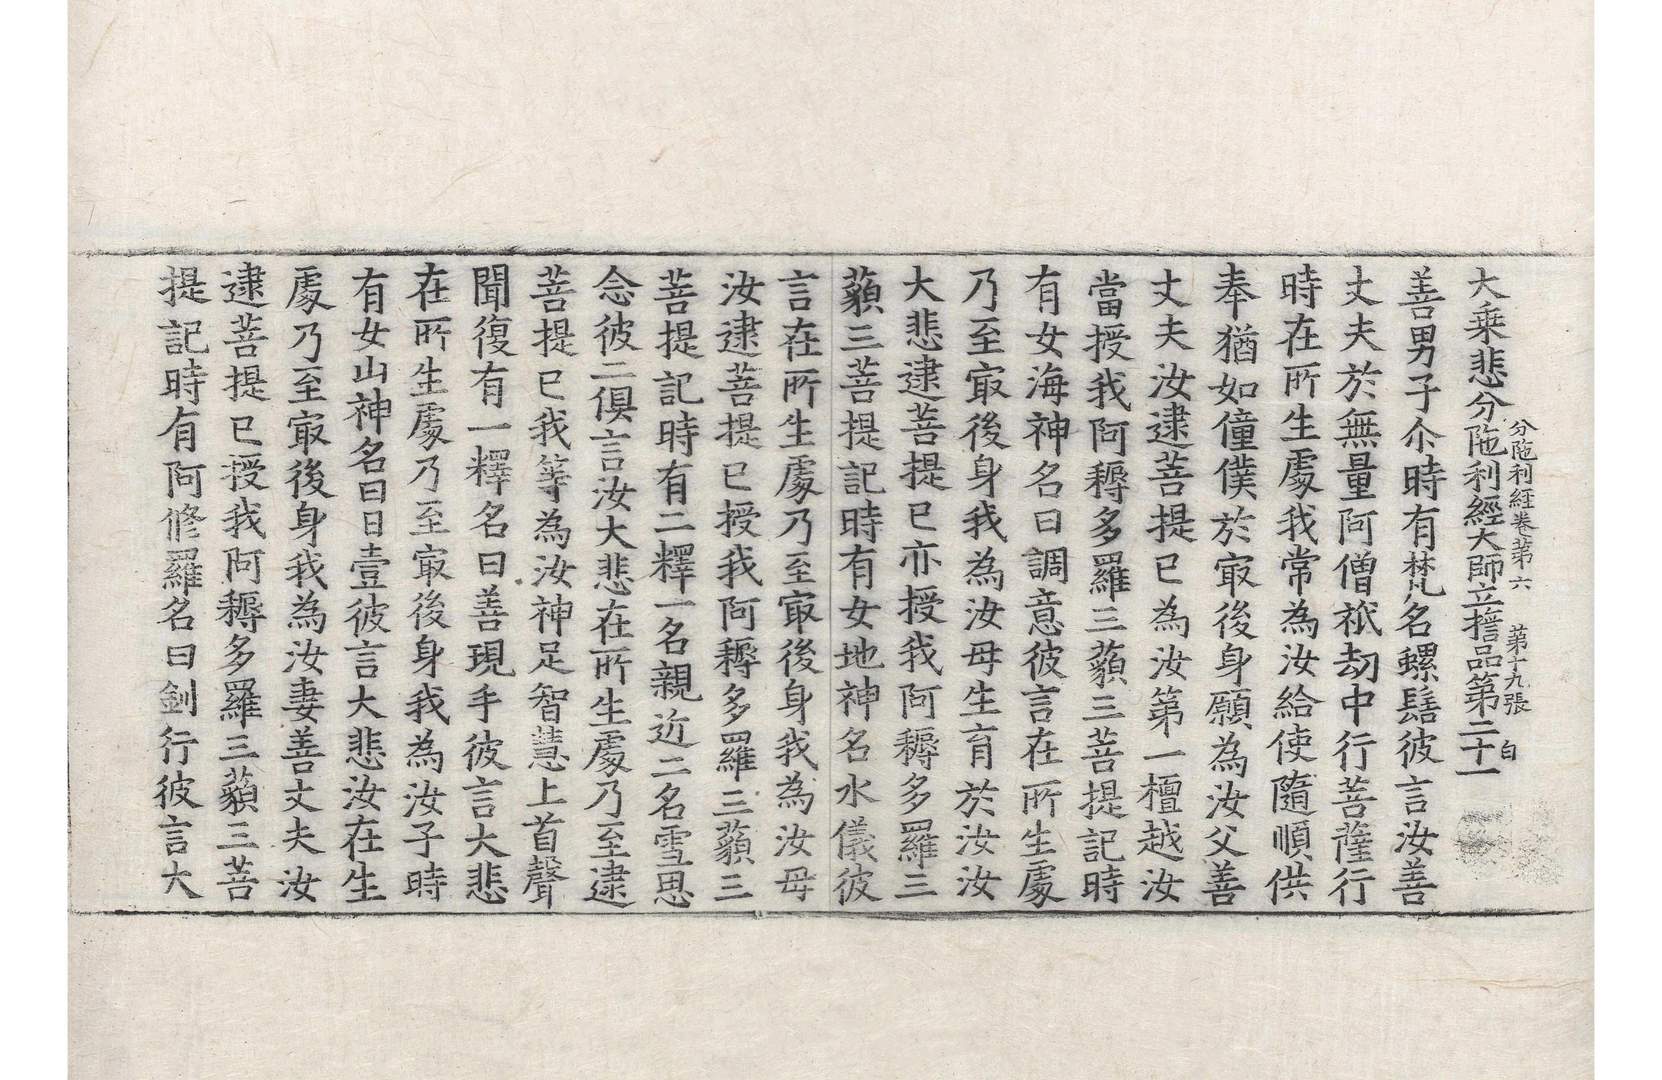 分陁利經卷第六　第十九張　白
大乘悲分陁利經大師立擔品第二十一
善男子尒時有梵名螺髻彼言汝善
丈夫於無量阿僧祇劫中行菩薩行
時在所生處我常為汝給使隨順供
奉猶如僮僕於㝡後身願為汝父善
丈夫汝逮菩提已為汝第一檀越汝
當授我阿耨多羅三藐三菩提記時
有女海神名曰調意彼言在所生處
乃至㝡後身我為汝母生育於汝汝
大悲逮菩提已亦授我阿耨多羅三
藐三菩提記時有女地神名水儀彼
言在所生處乃至㝡後身我為汝母
汝逮菩提已授我阿耨多羅三藐三
菩提記時有二釋一名親近二名雪思
念彼二俱言汝大悲在所生處乃至逮
菩提已我等為汝神足智慧上首聲
聞復有一釋名曰善現手彼言大悲
在所生處乃至㝡後身我為汝子時
有女山神名曰日壹彼言大悲汝在生
處乃至㝡後身我為汝妻善丈夫汝
逮菩提已授我阿耨多羅三藐三菩
提記時有阿修羅名曰釗行彼言大